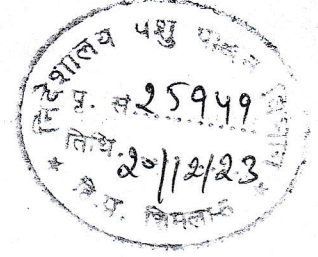 निदेशालय पशु पालन विभाग
पृ. सं. 25949
तिथि 20/12/23
हि.प्र. शिमला-5